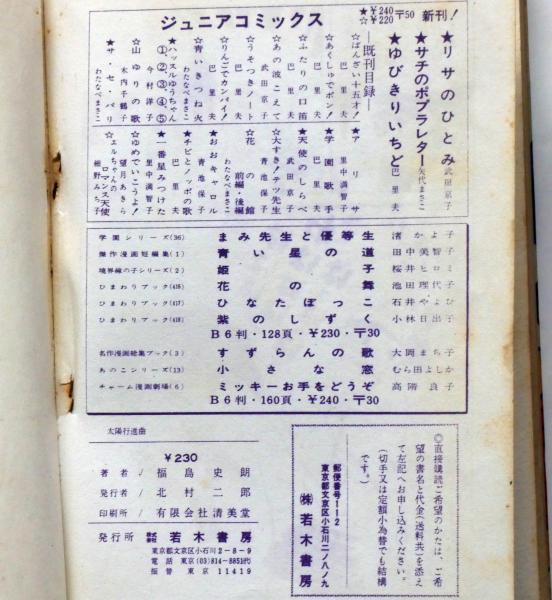 ジュニアコミックス
★¥240
☆¥220 〒50 新刊!
★リサのひとみ 武田京子
★サチのポプラレター 矢代まさこ
★ゆびきりいちど 巴里夫
―既刊目録―
☆ばんざい十五才! 巴里夫
☆あくしゅでポン! 巴里夫
☆ふたりの口笛 巴里夫
☆あの波こえて 武田京子
☆うそつきノート 巴里夫
☆りんごでカンパイ! 巴里夫
☆青いきつね火 わたなべまさこ
★ハッスルゆうちゃん ①②③④⑤ 今村洋子
☆山ゆりの歌 木内千鶴子
☆サ・セ・パリ わたなべまさこ
★アリサ 里中満智子
★学園歌手 巴里夫
★天使のしらべ 武田京子
☆大すき!テツ先生 青池保子
☆花の館 前編・後編 わたなべまさこ
★おおキャロル 青池保子
★チビとノッポの歌 巴里夫
★一番星みつけた 里中満智子
☆ゆめでいこうよ! 望月あきら
☆エルちゃんのロマンス天使 細野みち子
学園シリーズ(36) まみ先生と優等生 渚かよ子
傑作漫画短編集(1) 青い星の道 田中美智子
境界線の子シリーズ(2) 姫子 桜井ヒロミ
ひまわりブック(416) 花の舞 池田理代子
ひまわりブック(417) ひなたぼっこ 石井やよひ
ひまわりブック(418) 紫のしずく 小林日出子
B6判・128頁・¥230・〒30
名作漫画総集ブック(3) すずらんの歌 大岡まち子
あのこシリーズ(13) 小さな窓 むら田よしか
チャーム漫画劇場(6) ミッキーお手をどうぞ 高階良子
B6判・160頁・¥240・〒30
太陽行進曲
¥230
著者/福島史朗
発行者/北村二郎
印刷所/有限会社清美堂
発行所 株式会社 若木書房
東京都文京区小石川2-8-9
電話 東京(03)814-8851代
振替 東京 11419
◎直接購読ご希望のかたは、ご希
望の書名と代金(送料共)を添え
て左記へお申し込みください。
(切手又は定額小為替でも結構
です。)
郵便番号112
東京都文京区小石川二ノ八ノ九
㈱若木書房